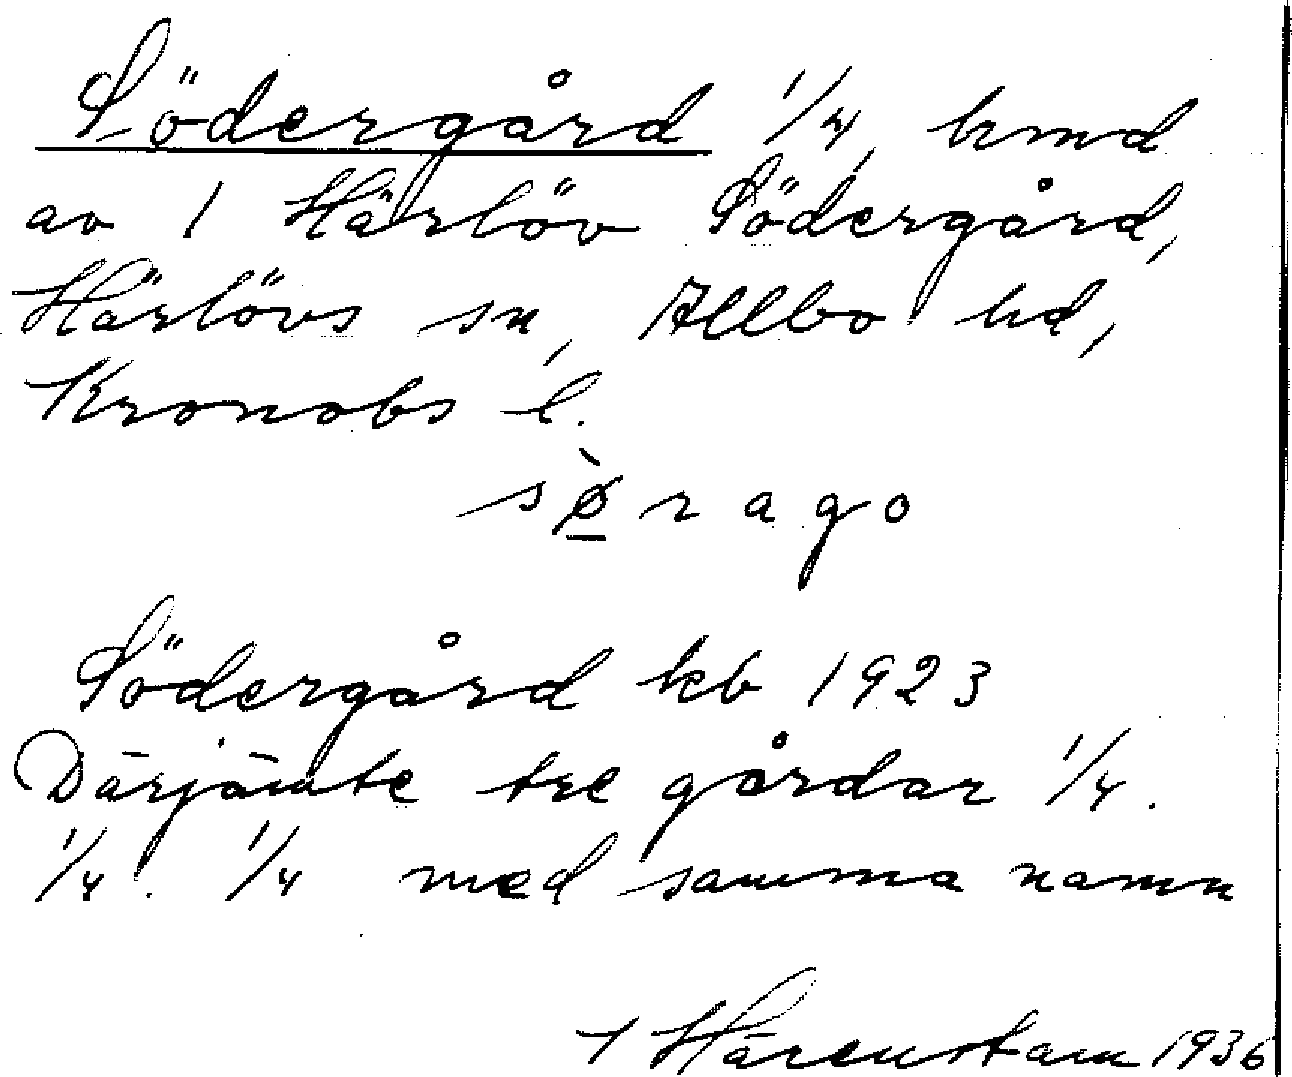 Södergård 1/4 hmd
av 1 Härlöv Södergård,
Härlövs sn, Allbo hd,
Kronobs l.
sø̠̀rago
Södergård kb 1923
Därjämte tre gårdar 1/4.
1/4. 1/4 med samma namn
Härenstam 1936